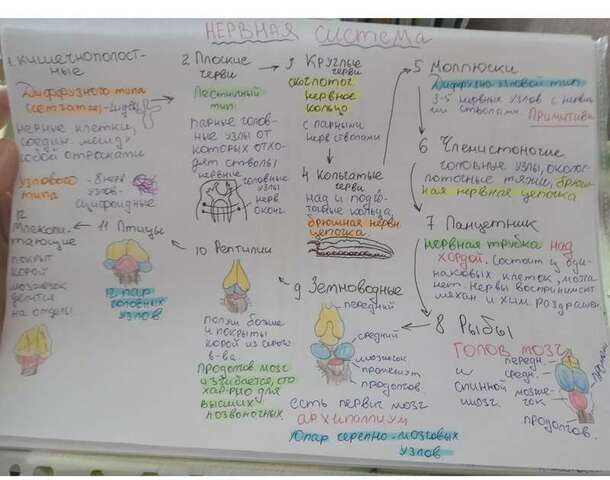 НЕРВНАЯ СИСТЕМА
1. КИШЕЧНОПОЛОСТ-
НЫЕ
Диффузного типа
(сетчатая)
нервные клетки,
соедин. между
собой отростками
Узлового
типа
- 8 нерв
узлов-
сцифоидные
2. Плоские
черви
Лестничный
тип
парные голов-
ные узлы от
которых отхо-
дят стволы
нервные
головные
узлы
нерв
оконч.
3 Круглые
черви
окологлот
нервное
кольцо
с парными
нерв стволами
4 Кольчатые
черви
над и подгло-
точные кольца,
брюшная нервн
цепочка
5 Моллюски
Диффузно узловой тип
3-5 нервных узлов с нервн
стволами Примитивн
6 Членистоногие
головные узлы, окологло-
точные тяжи, брюш-
ная нервная цепочка
7 Ланцетник
нервная трубка над
хордой. Состоит из один-
наковых клеток, мозга
нет Нервы воспринимают
механ и хим раздражен.
8 Рыбы
Голов мозг
и
спинной
мозг.
передн
средн
мозже-
чок
продолгов.
9 Земноводные
передний
средний
мозжечок
промежут
продолгов.
есть первич мозг
архипаллиум
10 пар черепно-мозговых
узлов
10 Рептилии
полуш больше
и покрыты
корой из серого
в-ва
Продолгов мозг
изгибается, это
хар-рно для
высших
позвоночных
11 Птицы
12 пар
головных
узлов
12
Млекопи-
тающие
покрыт
корой
мозжечок
делится
на отделы